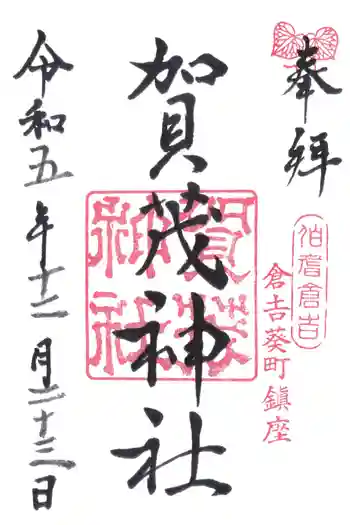 奉拝
伯耆倉吉
倉吉葵町鎮座
賀茂神社
賀茂神社
令和五年十二月二十三日